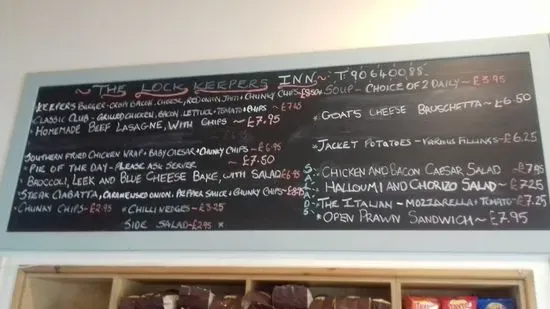 ~ THE LOCK KEEPERS INN ~ T. 90640088
KEEPERS BURGER - CRISPY BACON, CHEESE, RED ONION JAM + CHUNKY CHIPS £8.50
CLASSIC CLUB - GRILLED CHICKEN, BACON, LETTUCE + TOMATO + CHIPS ~ £7.95
* HOMEMADE BEEF LASAGNE, WITH CHIPS ~ £7.95
SOUTHERN FRIED CHICKEN WRAP + BABY CAESAR + CHUNKY CHIPS ~ £6.95
* PIE OF THE DAY - PLEASE ASK SERVER ~ £7.50
* BROCCOLI, LEEK AND BLUE CHEESE BAKE, WITH SALAD £6.95
STEAK CIABATTA, CARAMELISED ONION, PEPPER SAUCE + CHUNKY CHIPS ~ £8.75
* CHUNKY CHIPS - £2.95 * CHILLI WEDGES ~ £3.25
SIDE SALAD - £2.95 *
SOUP - CHOICE OF 2 DAILY ~ £3.95
* GOATS CHEESE BRUSCHETTA ~ £6.50
* JACKET POTATOES - VARIOUS FILLINGS ~ £6.25
* CHICKEN AND BACON CAESAR SALAD ~ £7.95
* HALLOUMI AND CHORIZO SALAD ~ £7.25
* THE ITALIAN - MOZZARELLA + TOMATO ~ £7.25
* OPEN PRAWN SANDWICH ~ £7.95